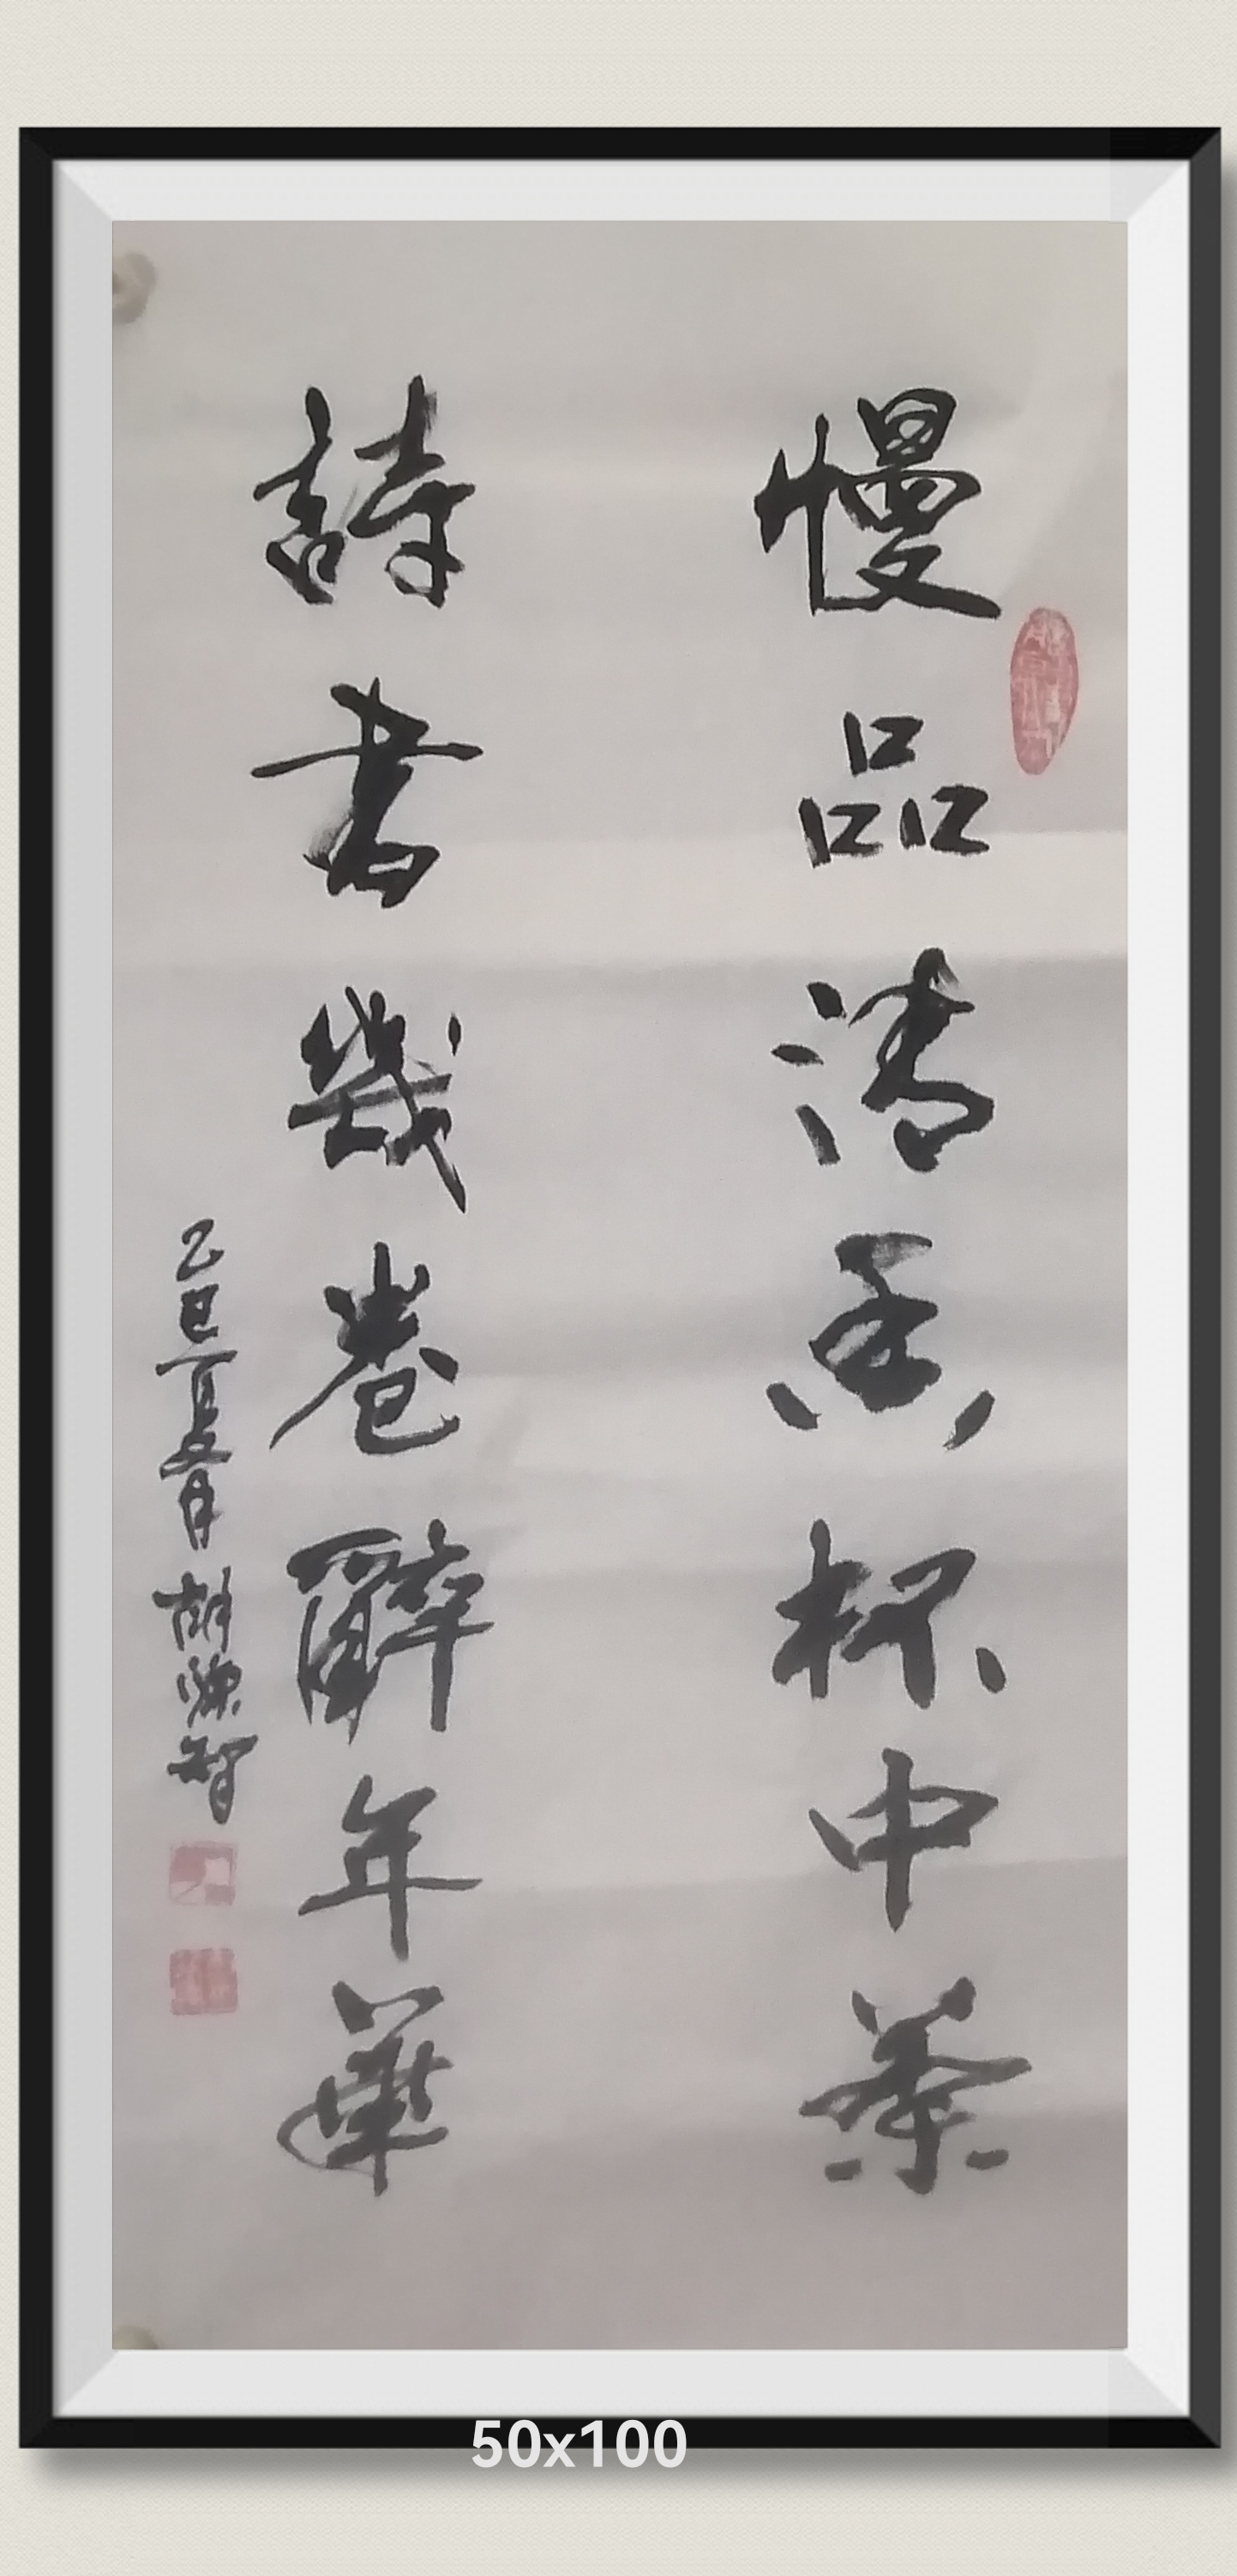 慢品清香杯中茶
詩書幾卷醉年華
乙巳夏月胡
50x100